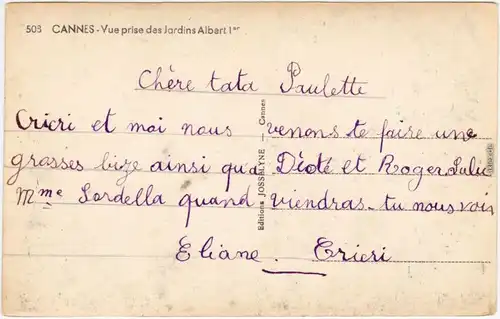 503 CANNES - Vue prise des Jardins Albert Ier
Chère tata Paulette
Cricri et moi nous venons te faire une
grosses bize ainsi qu'a Dédé et Roger Lulu
Mme Sordella quand viendras-tu nous voir
Eliane Cricri
Editions JOSSELYNE — Cannes